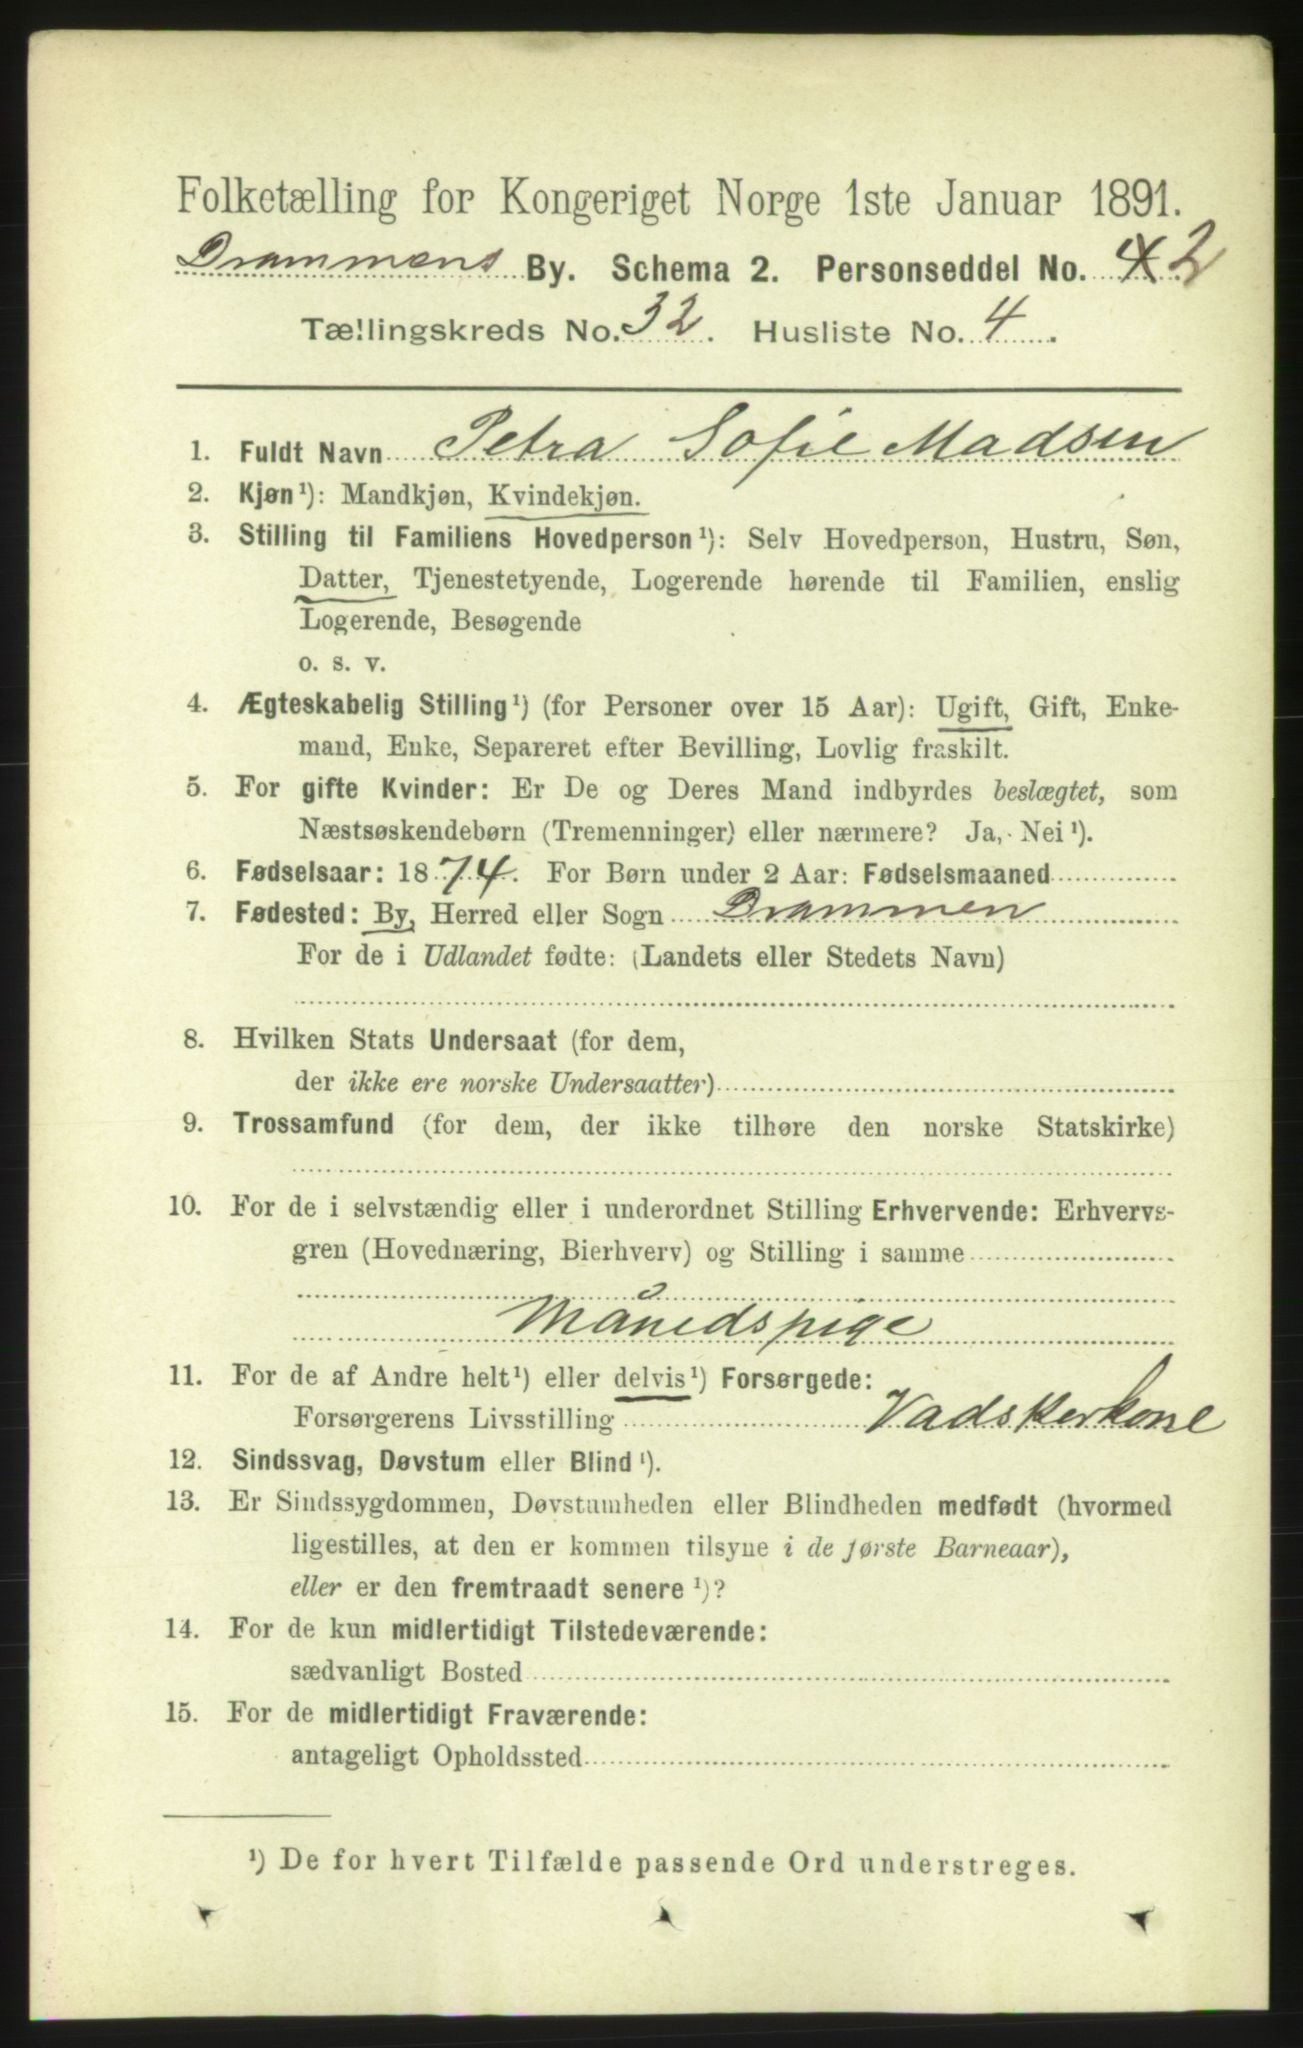 Folketælling for Kongeriget Norge 1ste Januar 1891.
Drammens By. Schema 2. Personseddel No. 42
Tællingskreds No. 32. Husliste No. 4.
1. Fuldt Navn Petra Sofie Madsen
2. Kjøn¹): Mandkjøn, Kvindekjøn.
3. Stilling til Familiens Hovedperson¹): Selv Hovedperson, Hustru, Søn,
Datter, Tjenestetyende, Logerende hørende til Familien, enslig
Logerende, Besøgende
o. s. v.
4. Ægteskabelig Stilling¹) (for Personer over 15 Aar): Ugift, Gift, Enke-
mand, Enke, Separeret efter Bevilling, Lovlig fraskilt.
5. For gifte Kvinder: Er De og Deres Mand indbyrdes beslægtet, som
Næstsøskendebørn (Tremenninger) eller nærmere? Ja, Nei¹).
6. Fødselsaar: 1874. For Børn under 2 Aar: Fødselsmaaned
7. Fødested: By, Herred eller Sogn Drammen
For de i Udlandet fødte: (Landets eller Stedets Navn)
8. Hvilken Stats Undersaat (for dem,
der ikke ere norske Undersaatter)
9. Trossamfund (for dem, der ikke tilhøre den norske Statskirke)
10. For de i selvstændig eller i underordnet Stilling Erhvervende: Erhvervs-
gren (Hovednæring, Bierhverv) og Stilling i samme
Månedspige
11. For de af Andre helt¹) eller delvis¹) Forsørgede:
Forsørgerens Livsstilling Vadskerkone
12. Sindssvag, Døvstum eller Blind¹).
13. Er Sindssygdommen, Døvstumheden eller Blindheden medfødt (hvormed
ligestilles, at den er kommen tilsyne i de første Barneaar),
eller er den fremtraadt senere¹)?
14. For de kun midlertidigt Tilstedeværende:
sædvanligt Bosted
15. For de midlertidigt Fraværende:
antageligt Opholdssted
¹) De for hvert Tilfælde passende Ord understreges.